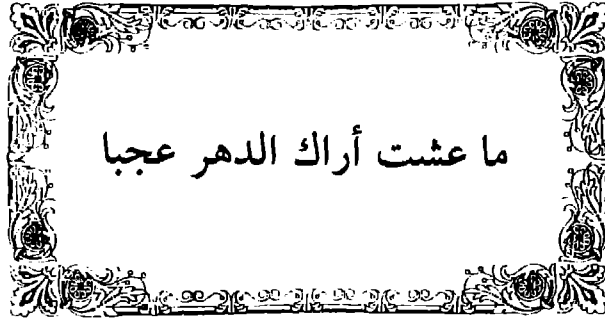 ما عشت أراك الدهر عجبا